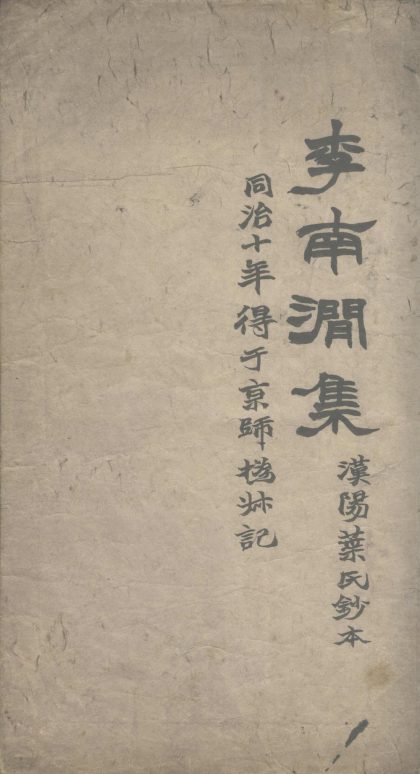 李南澗集
漢陽葉氏鈔本
同治十年得于亰師撝尗記